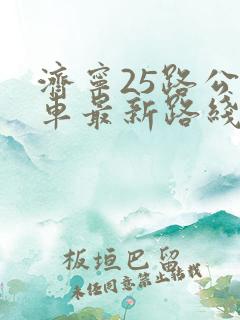 濟寧25路公
車最新路綫
板垣巴留
未经同意禁止转载